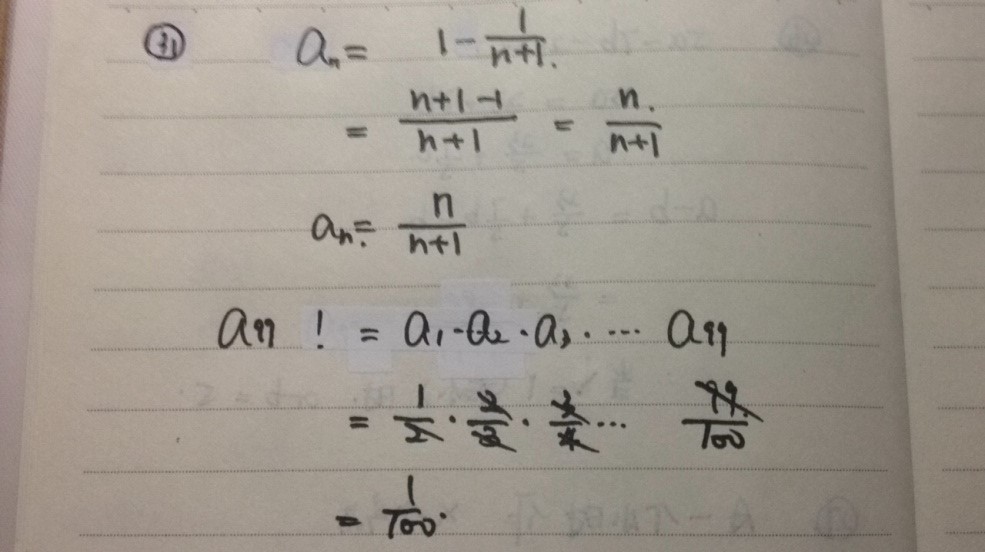 ⑪ aₙ = 1 - 1/(n+1).
= (n+1-1)/(n+1) = n/(n+1)
aₙ = n/(n+1)
a₉₉ ! = a₁·a₂·a₃· ··· a₉₉
= 1/2 · 2/3 · 3/4 ··· 99/100
= 1/100.